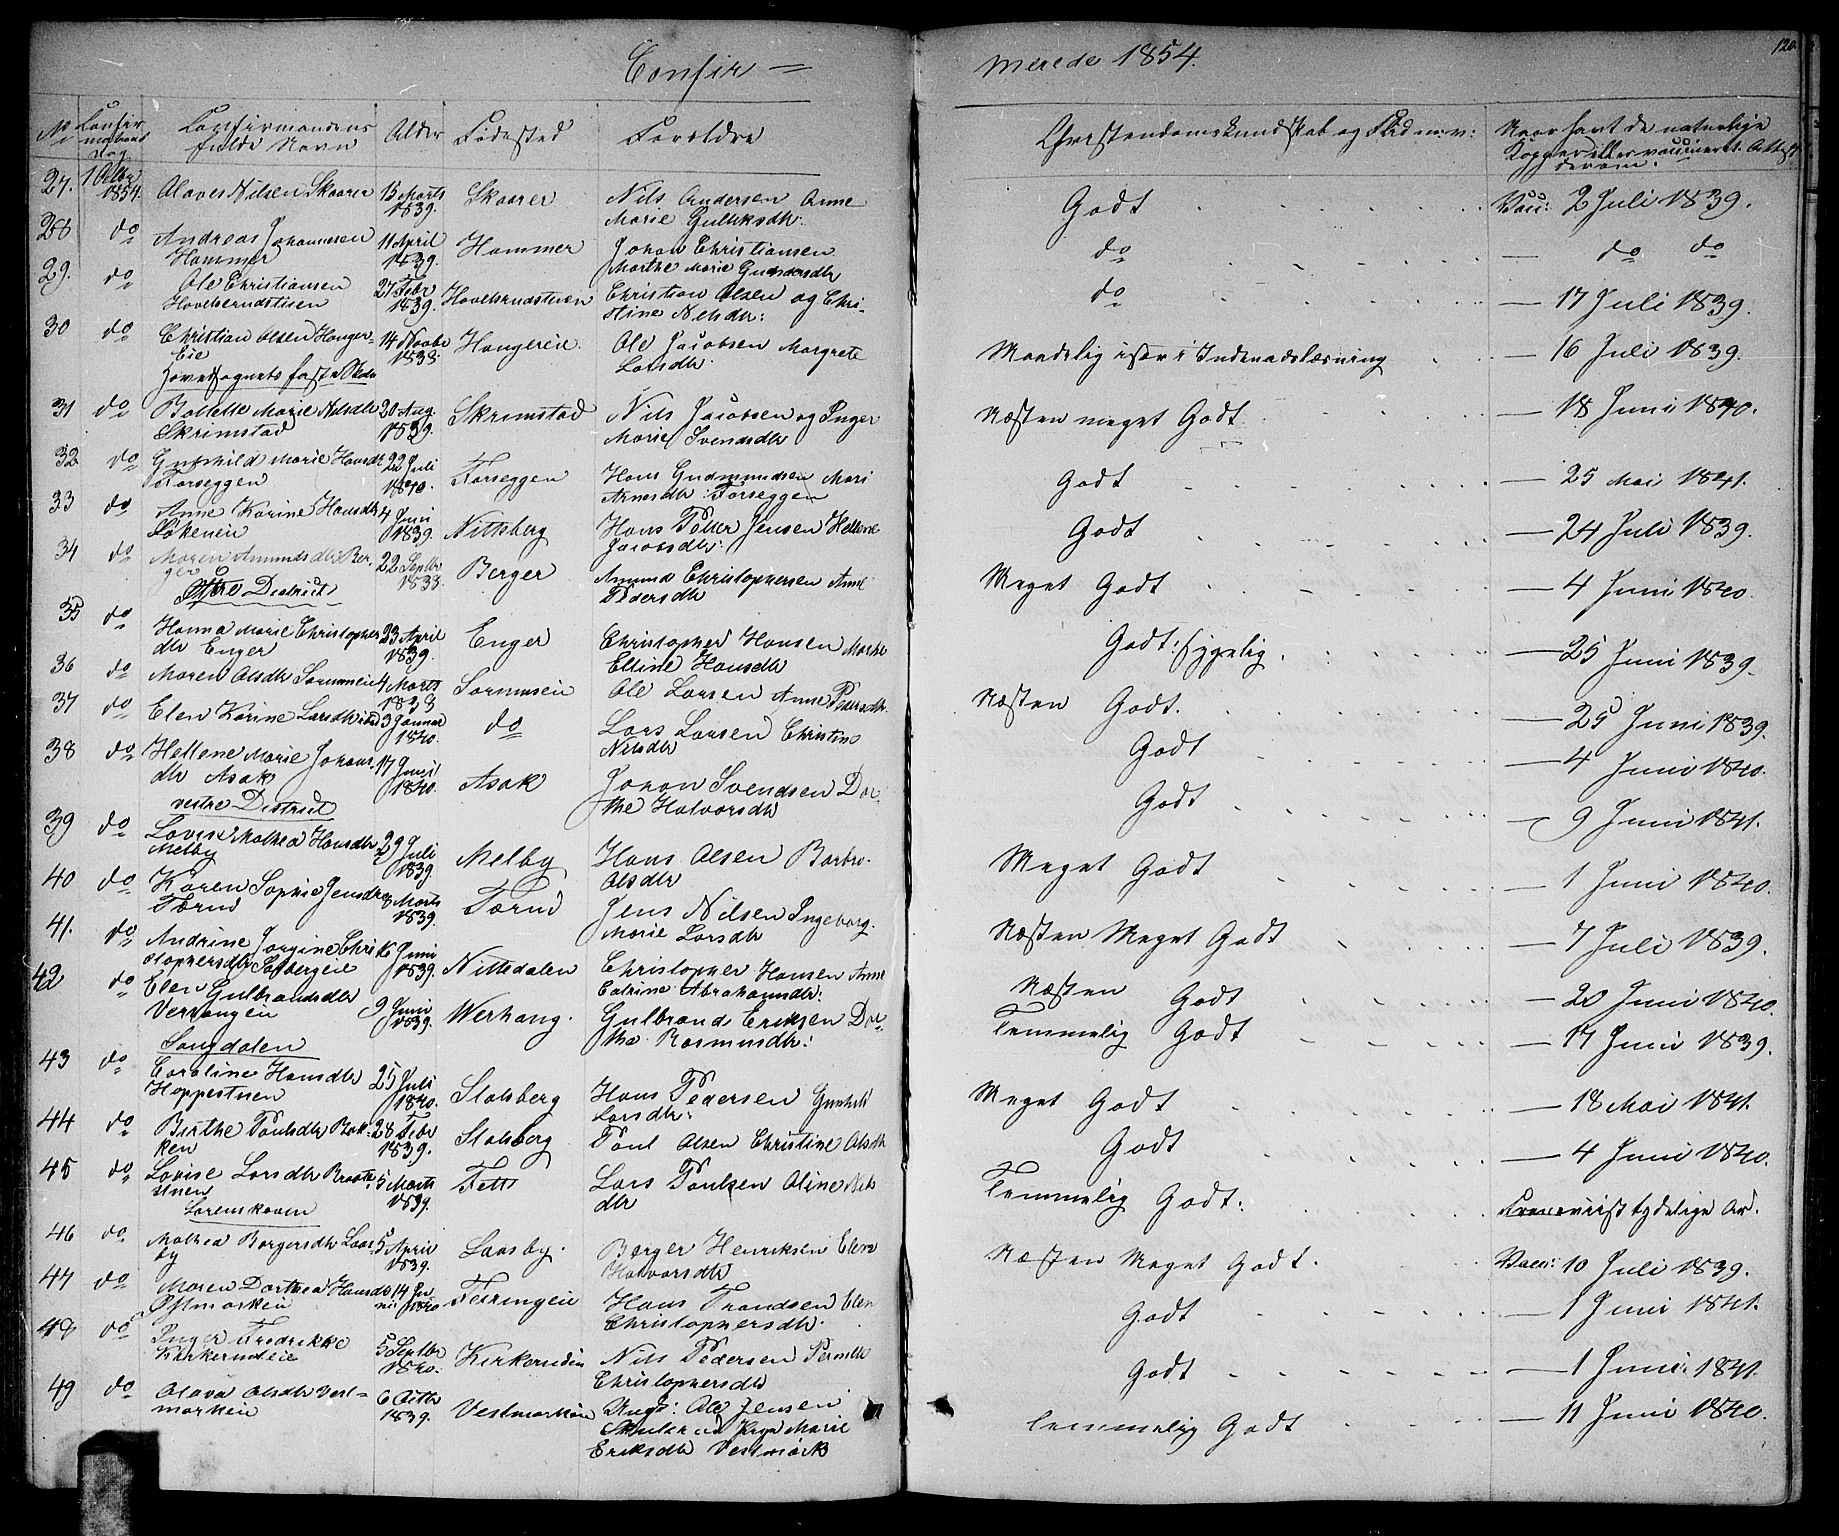 Confir =
merede 1854.
120.
No
Confir
mations
Dag
Confirmandens
fulde Navn
Alder
Fødested
Forældre
Christendomskundskab og Flid m: v:
Naar havt de naturlige
Kopper eller vaccineret. Attest
derom:
27. 1 Octbr 1854. Olaves Nilsen Skaarer 15 Marts 1839. Skaarer Nils Andersen Anne
Marie Gulliksdtr. Godt Vacc: 2 Juli 1839.
28 do Andreas Johannesen
Hammer 11 April 1839. Hammer Johan Christiansen
Marthe Marie Gundersdtr do — do do
29. do Ole Christiansen
Hovelsrudstuen 27 Febr 1839. Hovelsrudstuen Christian Olsen og Chri-
stine Nilsdtr: do — 17 Juli 1839.
30 do Christian Olsen Hauger-
Eie 14 Novbr 1838 Haugereie. Ole Jacobsen Margrete
Larsdtr. Maadelig især i Indenadslæsning — 16 Juli 1839.
Hovedsognets faste Skole
31 do Bollette Marie Nilsdtr
Skrimstad 20 Aug. 1839. Skrimstad Nils Jacobsen og Inger
Marie Svendsdtr Næsten meget Godt — 18 Juni 1840.
32 do Gunhild Marie Hansdtr
Torseggen 22 Juli 1840. Torseggen Hans Gudmundsen Mari
Arnesdtr: Torseggen Godt — 25 Mai 1841.
33 do Anne Karine Hansdtr
Løkeneie 4 Juni 1839. Nittsberg Hans Petter Jensen Hellene
Jacobsdtr: Godt — 24 Juli 1839.
34 do Maren Amundsdtr Ber-
ger 22 Septbr 1838. Berger Amund Christophersen Anne
Pedersdtr Meget Godt — 4 Juni 1840.
Østre District
35 do Hanna Marie Christopher
dtr Enger 23 April 1839. Enger Christopher Hansen Marthe
Elline Hansdtr Godt: sygelig. — 25 Juni 1839.
36 do Maren Olsdtr Sørumseie 4 Marts 1838 Sørumseie Ole Larsen Anne Pedersdtr. Næsten Godt. — 25 Juni 1839.
37 do Elen Karine Larsdtr ibid 3 Januar 1840. do Lars Larsen Christine
Nilsdtr Godt — 4 Juni 1840.
38 do Hellene Marie Johans-
dtr Asak 17 Juni 1840. Asak Johan Svendsen Dor-
the Halvorsdtr Godt — 9 Juni 1841.
vestre District
39 do Lovise Mathea Hansdtr
Melby 29 Juli 1839. Melby Hans Olsen Barbro.
Olsdtr Meget Godt — 1 Juni 1840.
40 do Karen Sophie Jensdtr
Tærud 8 Marts 1839. Tærud Jens Nilsen Ingeborg.
Marie Larsdtr Næsten Meget Godt — 7 Juli 1839.
41. do Andrine Jørgine Chri
stophersdtr Solbergeie 16 Juni 1839. Nittsdalen Christopher Hansen Anne
Catrine Abrahamsdtr: Næsten Godt — 20 Juni 1840.
42 do Elen Gulbrandsdtr
Værhangen 9 Juni 1839. Werhang. Gulbrand Eriksen Dor-
the Rasmusdtr: Temmelig Godt — 17 Juni 1839.
Laugdalen
43 do Caroline Hansdtr
Hoppestuen 25 Juli 1840. Stalsberg Hans Pedersen Gunhild
Larsdtr: Meget Godt — 18 Mai 1841.
44 do Birthe Poulsdtr Bak-
ken 28 Febr 1839. Stalsberg Poul Olsen Christine Olsdtr Godt — 4 Juni 1840.
45 do Lovise Larsdtr Braate
stuen 5 Marts 1839. Fett Lars Poulsen Oline Nils
dtr Temmelig Godt: tydelige Ar.
Lørenskoven
46 do Mathea Børgersdtr Laas
by 5 April 1839. Laasby. Børger Henriksen Elen
Halvorsdtr Næsten Meget Godt. Vacc: 10 Juli 1839.
47 do Maren Dorthea Hansdtr
Østmarken 14 Juni 1840 Feiringeie Hans Trondsen Elen
Christophersdtr. Godt — 1 Juni 1841.
48 do Inger Fredrikke
Kirkerudeie 5 Septbr 1840. Kirkerudeie Nils Pedersen Pernille
Christophersdtr Godt — 1 Juni 1841.
49 do Olava Olsdtr Vest-
marken 6 Octbr 1839. Vestmarken Ungk: Ole Jensen
Marie
Eriksdtr Vestmark temmelig Godt — 11 Juni 1840.